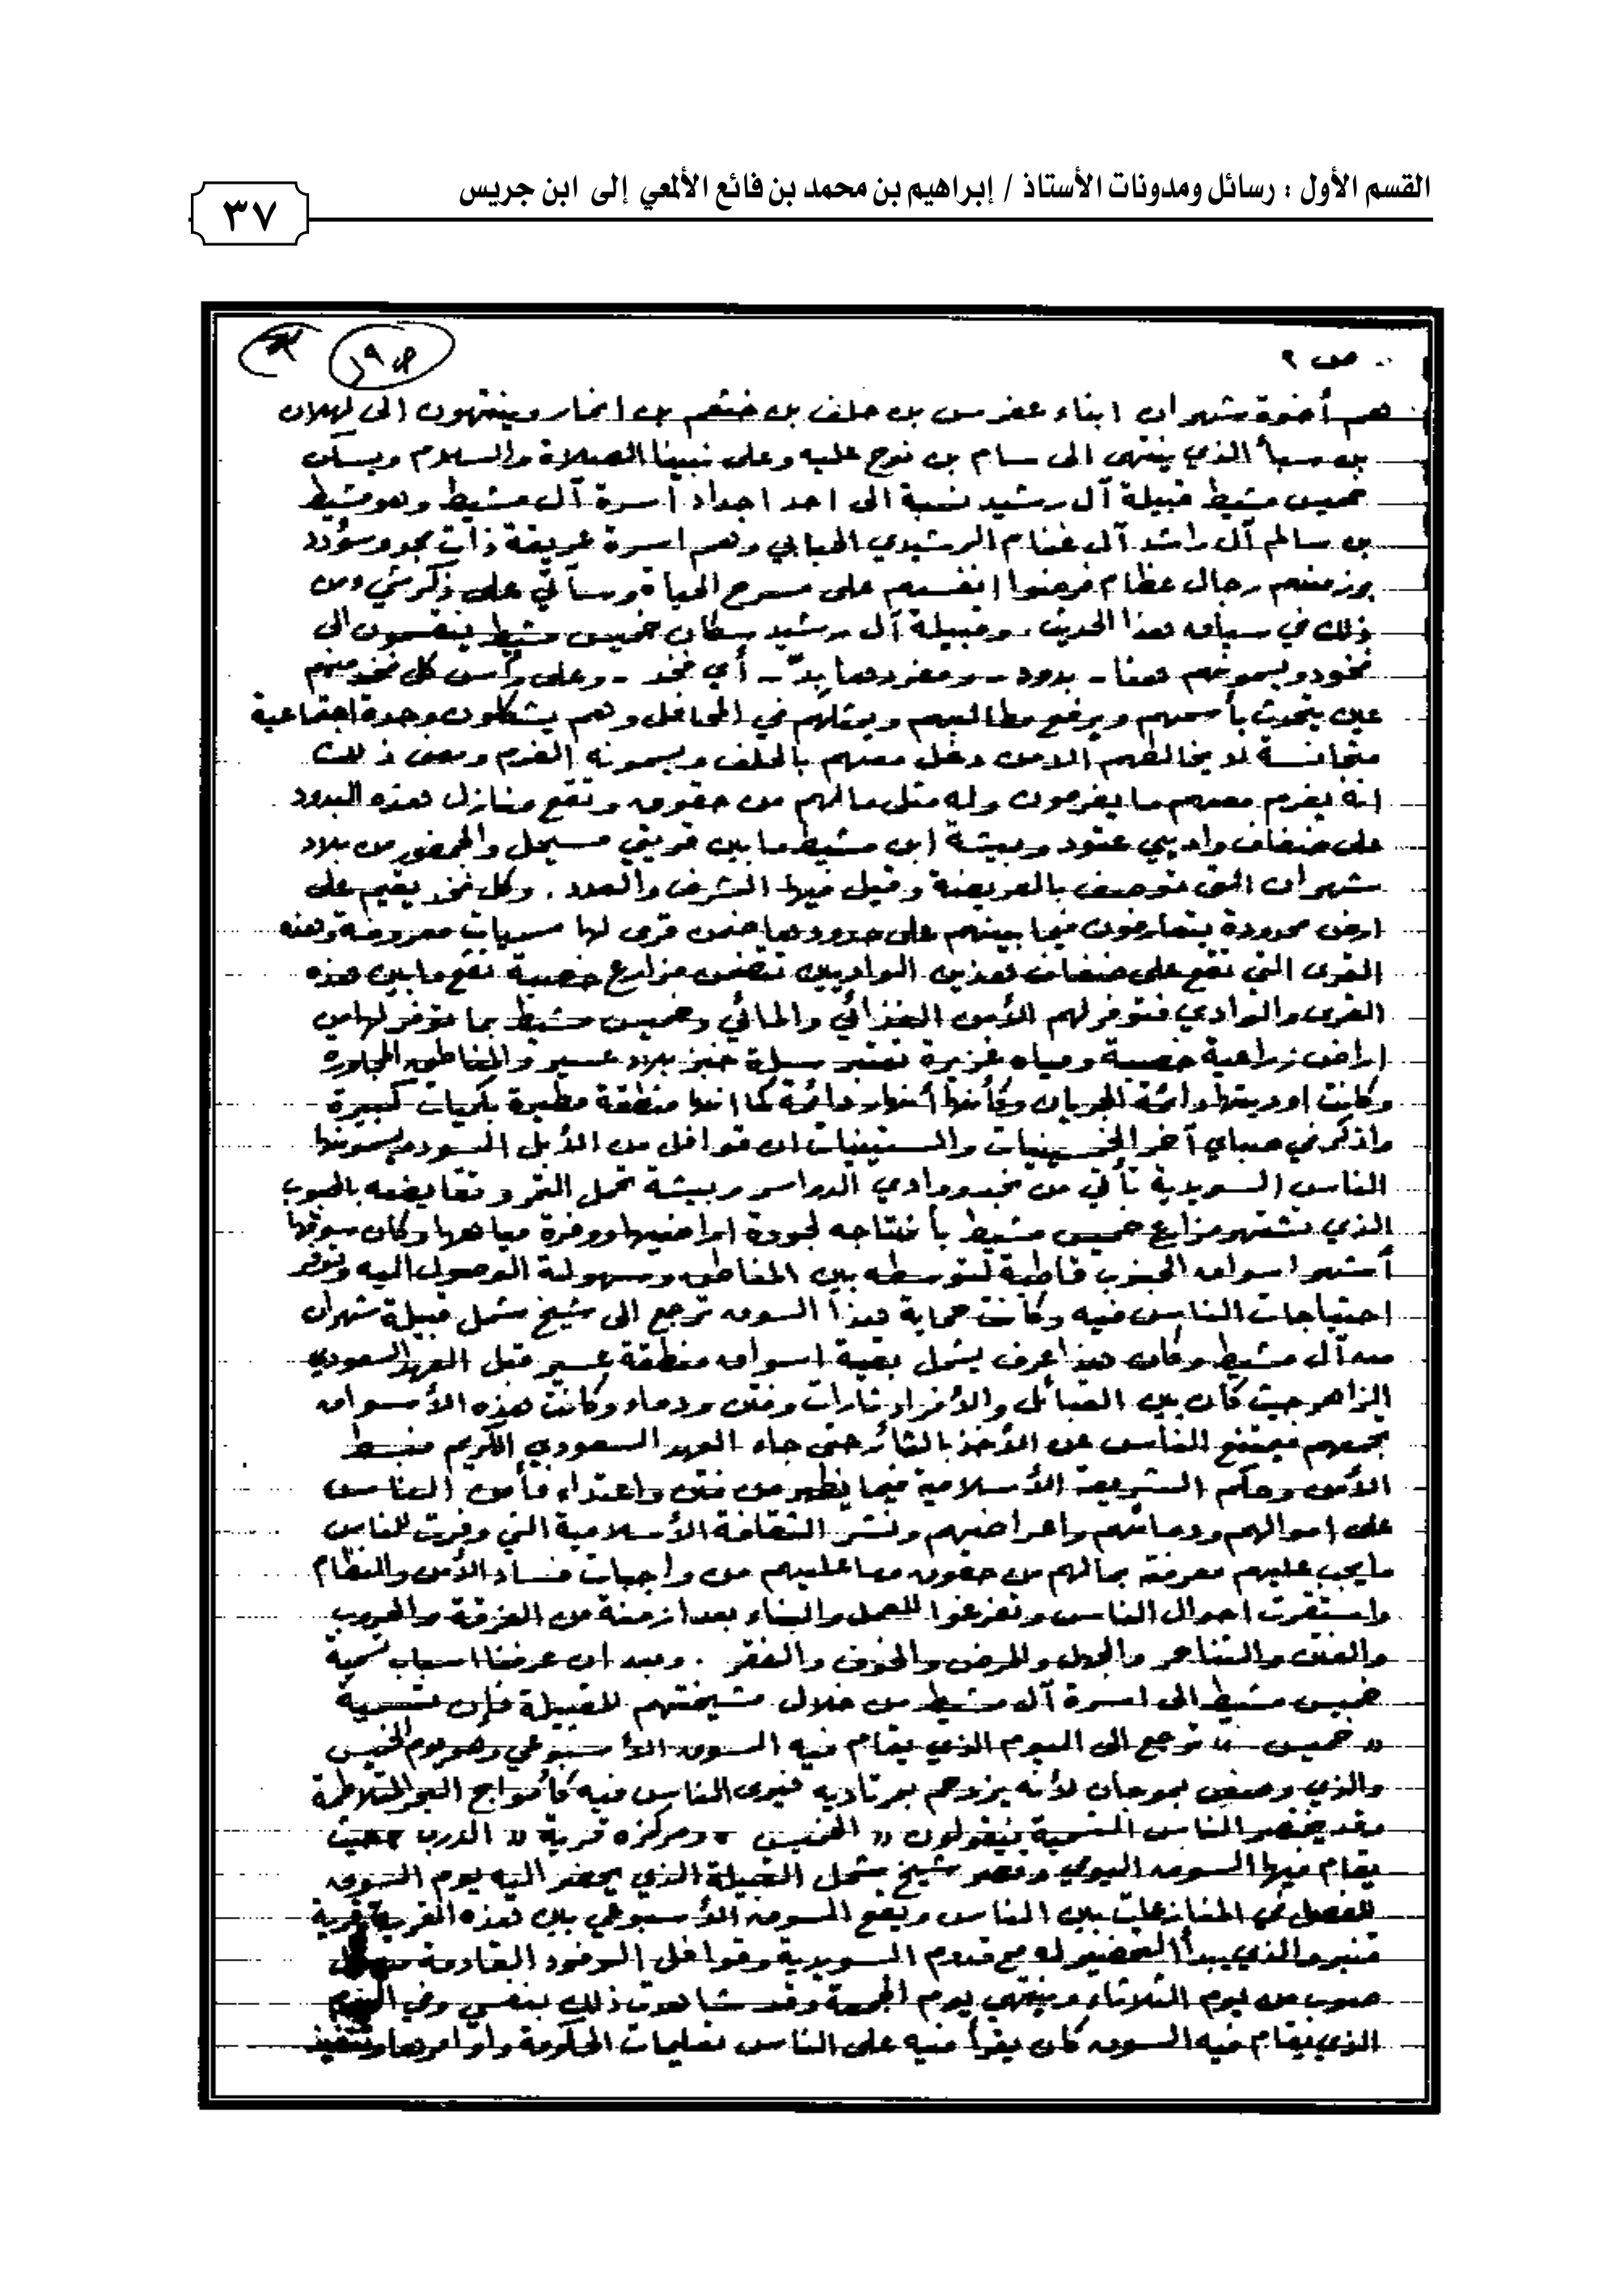 القسم الأول : رسائل ومدونات الأستاذ / إبراهيم بن محمد بن فائع الألمعي إلى ابن جريس
٣٧
ص ٢
هم أخوة شهران ابناء عفرس بن حلف بن خثعم بن انمار وينتهون الى كهلان
بن سبأ الذي ينتهي الى سام بن نوح عليه وعلى نبينا الصلاة والسلام ويسكن
خميس مشيط قبيلة آل رشيد نسبة الى احد اجداد أسرة آل مشيط وهو مشيط
بن سالم آل راشد آل غنام الرشيدي وهم اسرة عريقة ذات مجد وسؤدد
برز منهم رجال عظام فرضوا انفسهم على مسرح الحياة وسآتي على ذكر شيء من
ذلك في سياق هذا الحديث . وقبيلة آل رشيد سكان خميس مشيط ينقسمون الى
فخود ويسمونهم هنا - بدود - ومفردها بدّ - أي فخذ - وعلى رأس كل فخذ منهم
عين يتحدث بأسمهم ويرفع مطالبهم ويمثلهم في المحافل وهم يشكلون وحدة اجتماعية
متجانسة لا يخالطهم الا من دخل معهم بالحلف ويسمونه الغرم ومعنى ذلك
انه يغرم معهم ما يغرمون وله مثل مالهم من حقوق وتقع منازل هذه البدود
على ضفاف واديي عتود وبيشة ابن مشيط ما بين قريتي مسيحل والمحضور من بلاد
شهران التي توصف بالعريضة وقيل فيها الشرف والعدد . وكل فخذ يقيم على
ارض محدودة يتعارفون فيما بينهم على حدودها ضمن قرى لها مسميات معروفة وهذه
القرى التي تقع على ضفاف هذين الواديين تتضمن مزارع خصبة تقع ما بين هذه
القرى والوادي فتوفر لهم الأمن الغذائي والمائي وخميس مشيط بما توفر لها من
اراض زراعية خصبة ومياه غزيرة تعتبر سلة خبز بلاد عسير والمناطق المجاورة
وكانت اوديتها دائمة الجريان وكأنها أنهار دائمة كما انها منطقة مطيرة بكميات كبيرة
واذكر في صباي آخر الخمسينيات والستينيات ان قوافل من الأبل السود ويسمونها
الناس السويدية تأتي من نجد ووادي الدواسر وبيشة تحمل التمر وتقايضه بالحبوب
الذي تشتهر مزارع خميس مشيط بأنتاجه لجودة اراضيها ووفرة مياهها وكان سوقها
أشهر اسواق الجنوب قاطبة لتوسطه بين المناطق وسهولة الوصول اليه وتوفر
احتياجات الناس فيه وكانت حماية هذا السوق ترجع الى شيخ شمل قبيلة شهران
من آل مشيط وكان هذا عرف يشمل بقية اسواق منطقة عسير قبل العهد السعودي
الزاهر حيث كان بين القبائل والأفراد ثارات وفتن ودماء وكانت هذه الأسواق
تجمعهم فيمتنع الناس عن الأخذ بالثأر حتى جاء العهد السعودي الكريم فبسط
الأمن وحكم الشريعة الأسلامية فيما يظهر من فتن واعتداء فأمن الناس
على اموالهم ودمائهم واعراضهم ونشر الثقافة الأسلامية التي وفرت للناس
ما يجب عليهم معرفة بمالهم من حقوق وما عليهم من واجبات فساد الأمن والنظام
واستقرت احوال الناس وتفرغوا للعمل والبناء بعد ازمنة من الفرقة والحروب
والفتن والتناحر والجهل والمرض والخوف والفقر . وبعد ان عرفنا اسباب تسمية
خميس مشيط الى اسرة آل مشيط من خلال مشيختهم للقبيلة فإن تسمية
« خميس » ترجع الى اليوم الذي يقام فيه السوق الأسبوعي وهو يوم الخميس
والذي وصف بموجان لأنه يزدحم بمرتاديه فيرى الناس فيه كأمواج البحر المتلاطمة
وقد يختصر الناس التسمية فيقولون « الخميس » ومركزه قرية « الدرب » حيث
يقام فيها السوق اليومي وقصر شيخ شمل القبيلة الذي يحضر اليه يوم السوق
للفصل في المنازعات بين الناس ويقع السوق الأسبوعي بين هذه القرية وقرية
قنبر والذي يبدأ التحضير له مع قدوم السويدية وقوافل الوفود القادمة من كل
صوب من يوم الثلاثاء وينتهي يوم الجمعة وقد شاهدت ذلك بنفسي وفي اليوم
الذي يقام فيه السوق كان يقرأ فيه على الناس تعليمات الحكومة واوامرها وتنفيذ